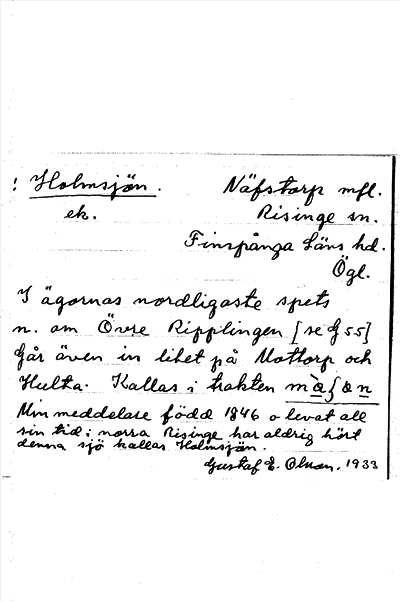 ! Holmsjön. Näfstorp mfl.
ek. Risinge sn.
Finspånga Läns hd.
Ögl.
I ägornas nordligaste spets
n. om Övre Ripplingen [se G 55]
Går även in litet på Mottorp och
Hulta. Kallas i trakten
Min meddelare född 1846 o levat all
sin tid i norra Risinge har aldrig hört
denna sjö kallas Holmsjön.
Gustaf E. Olsson. 1933